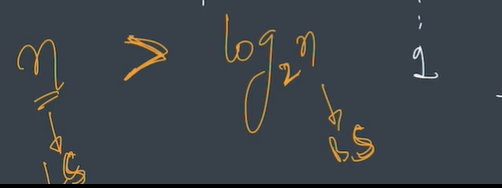 n > log₂n
1
LS
bS